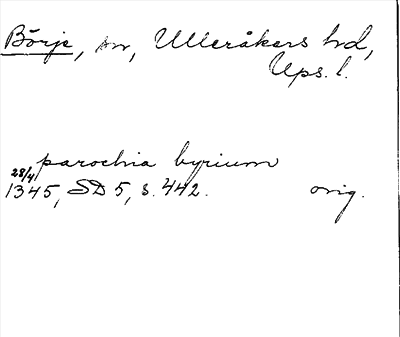 Börje, sn, Ulleråkers hd,
Ups. l.
parochia byrium
28/4
1345, SD 5, s. 442. orig.